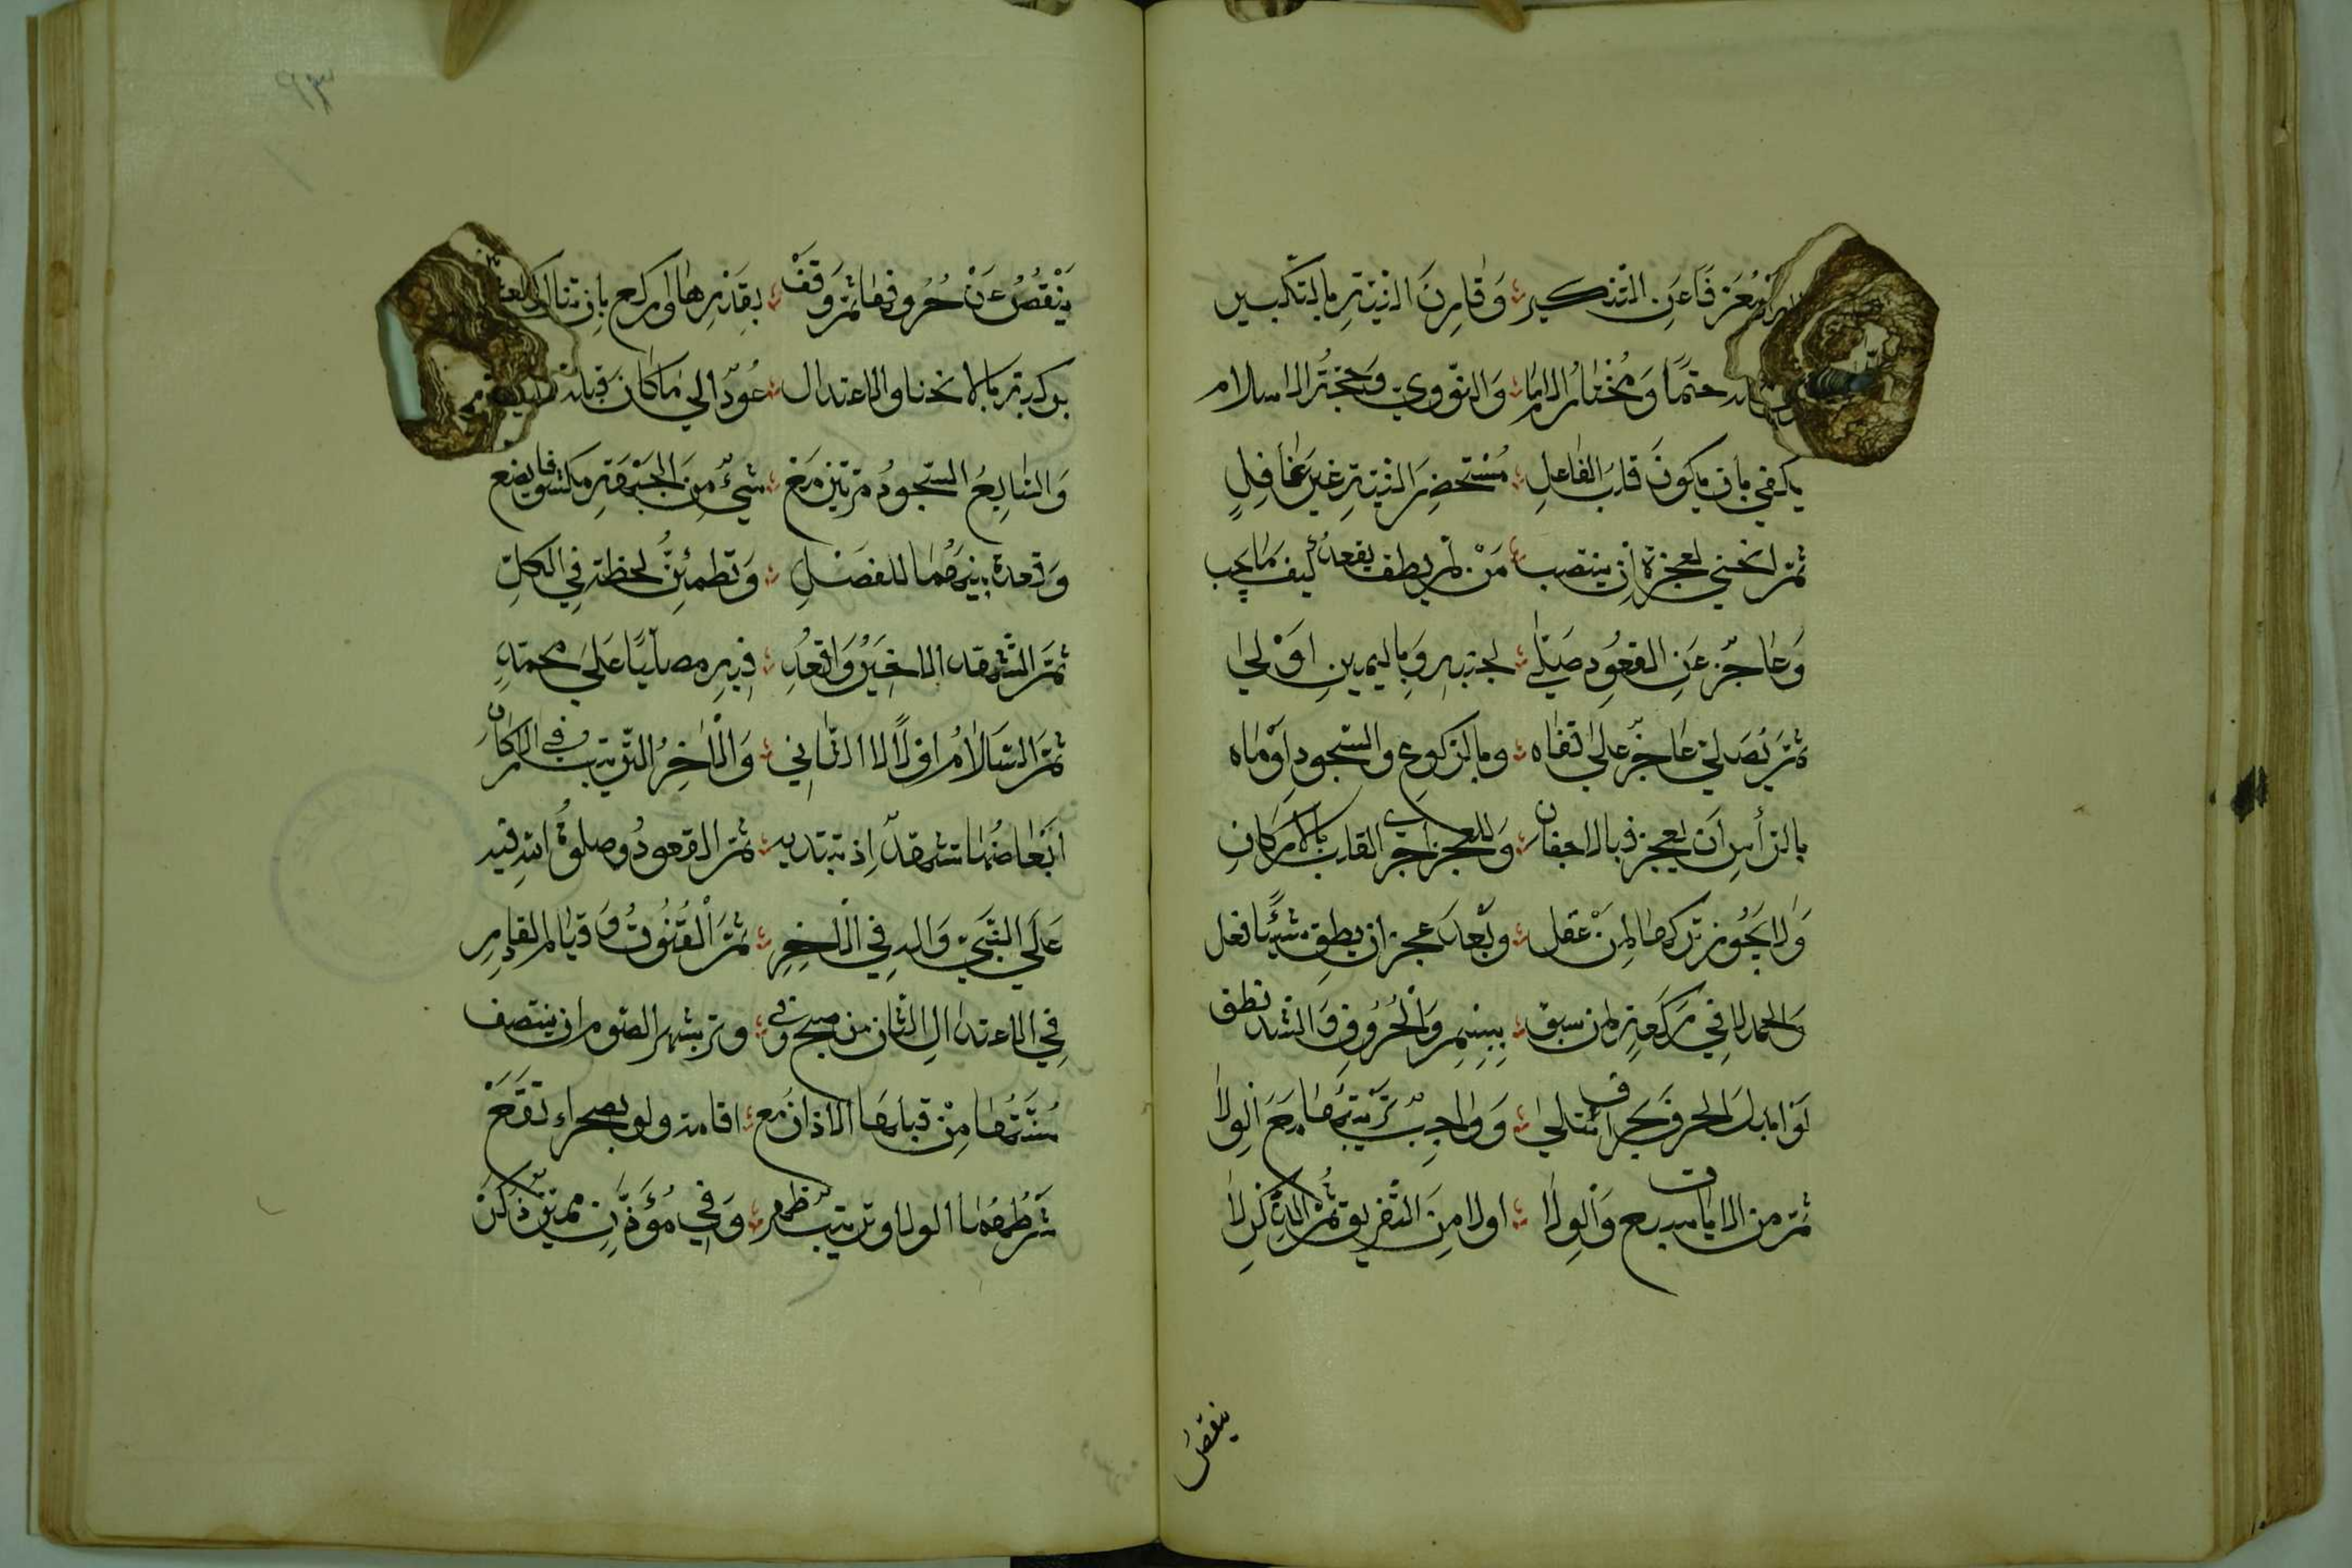 معرفا عن التنكير وقارن النية بالتكبير
حتما ومختار الاما والنووي وحجة الاسلام
يكفي بان يكون قلب الفاعل مستحضر النية غير غافل
ثم انحنى لعجزه ان ينتصب من لم يطق يقعد كيف ما يحب
وعاجز عن القعود صلى لجنبه وباليمين اولى
ثم يصلي عاجز على قفاه وبالركوع والسجود اوماه
بالرأس ان يعجز فبالاجفان وللعجز اجرى القلب بالاركان
ولا يجوز تركها لمن عقل وبعد عجز ان يطق شيئا فعل
والحمد لا في ركعة لمن سبق ببسم والحروف والشد نطق
لو ابدل الحرف بحرف ابطلا وواجب ترتيبها مع الولا
ثم من الايات سبع والولا اولا من التفريق ثم الذكر لا
ينقص
ينقص عن حروفها ثم وقف بقدرها واركع بان تنال الكف
بركبة بالانحنا والاعتدال عود الى ما كان قبله
والسابع السجود مرتين مع شيء من الجبهة مكشوفا يضع
وقعدة بينهما للفصل وتطمئن لحظة في الكل
ثم التشهد الاخير واقعد فيه مصليا على محمد
ثم السلام اولا لا الثاني والاخر الترتيب في الاركان
ابعاضها تشهد اذ تبتديه ثم القعود وصلوة الله فيه
على النبي واله في الاخر ثم القنوت وقيام القادر
في الاعتدال الثان من صبح وفي وتر بشهر الصوم ان ينتصف
سنتها من قبلها الاذان مع اقامة ولو بصحراء تقع
شرطهما الولا وترتيب ظهر وفي مؤذن مميز ذكر